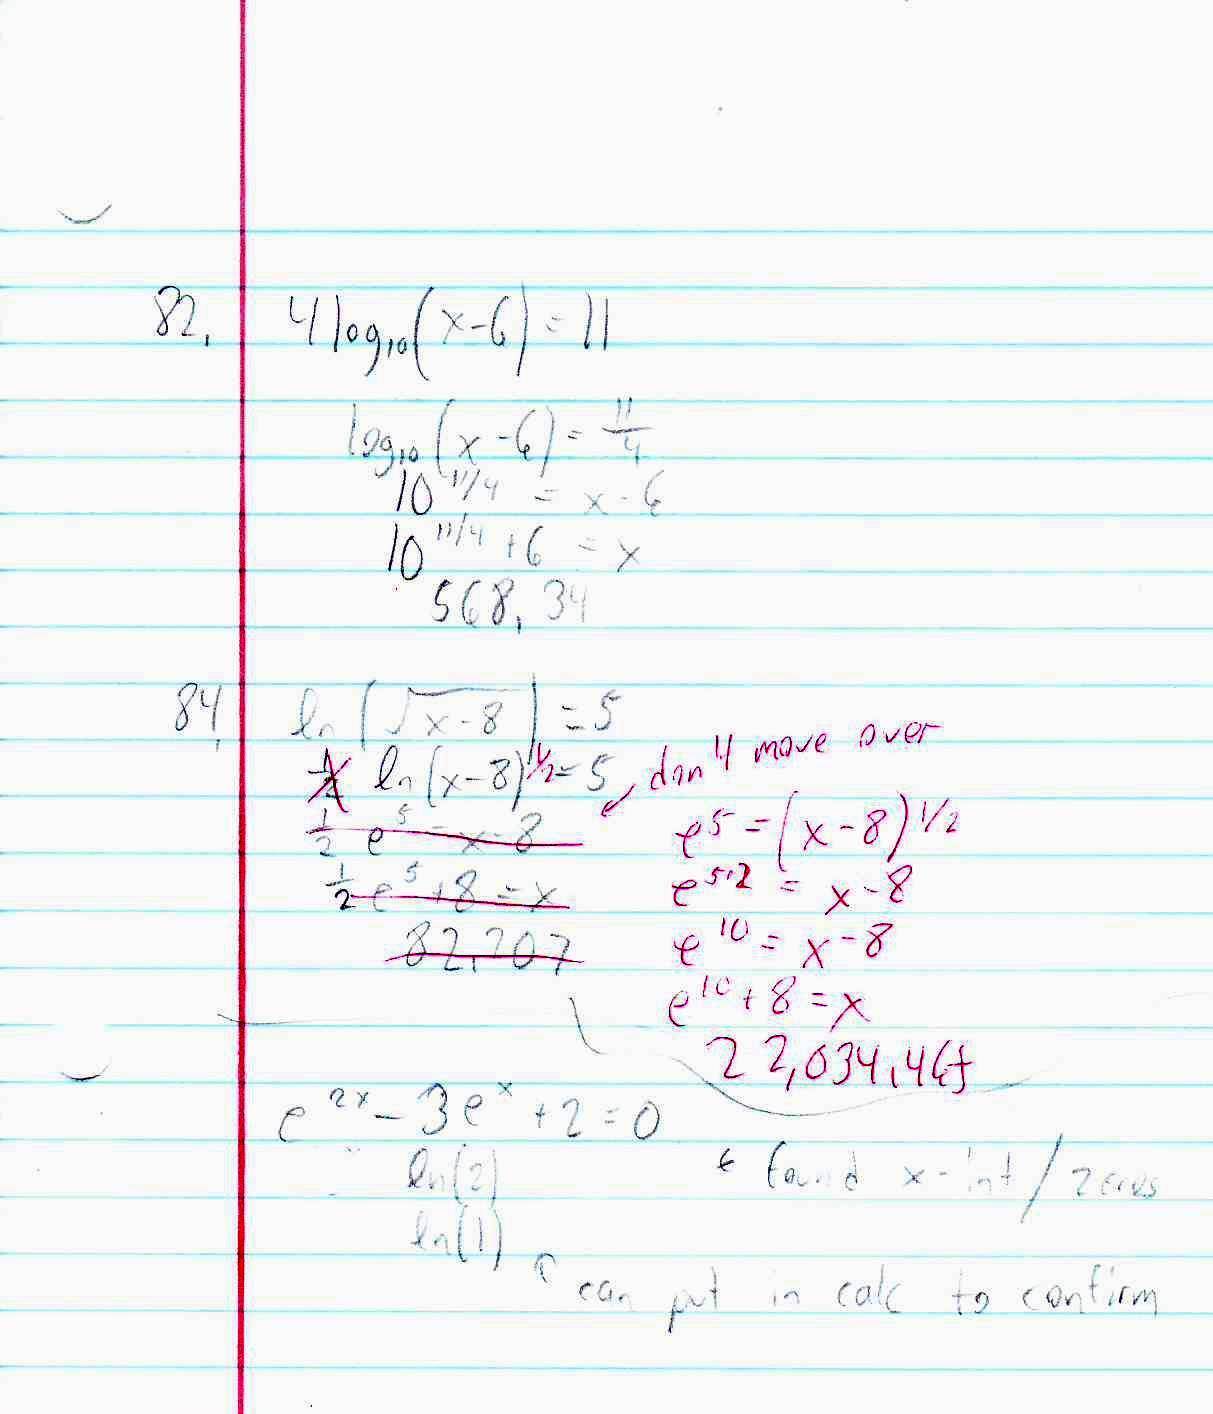 82. 4 log₁₀(x-6) = 11
log₁₀(x-6) = 11/4
10^11/4 = x-6
10^11/4 + 6 = x
568.34
84. ln(√x-8) = 5
1/2 ln(x-8)^1/2 = 5
don't move over
1/2 e^5 = x-8
1/2 e^5 + 8 = x
82.207
e^5 = (x-8)^1/2
e^5·2 = x-8
e^10 = x-8
e^10 + 8 = x
22,034.465
e^2x - 3e^x + 2 = 0
ln(2) ← found x-int/zeros
ln(1)
↑ can put in calc to confirm